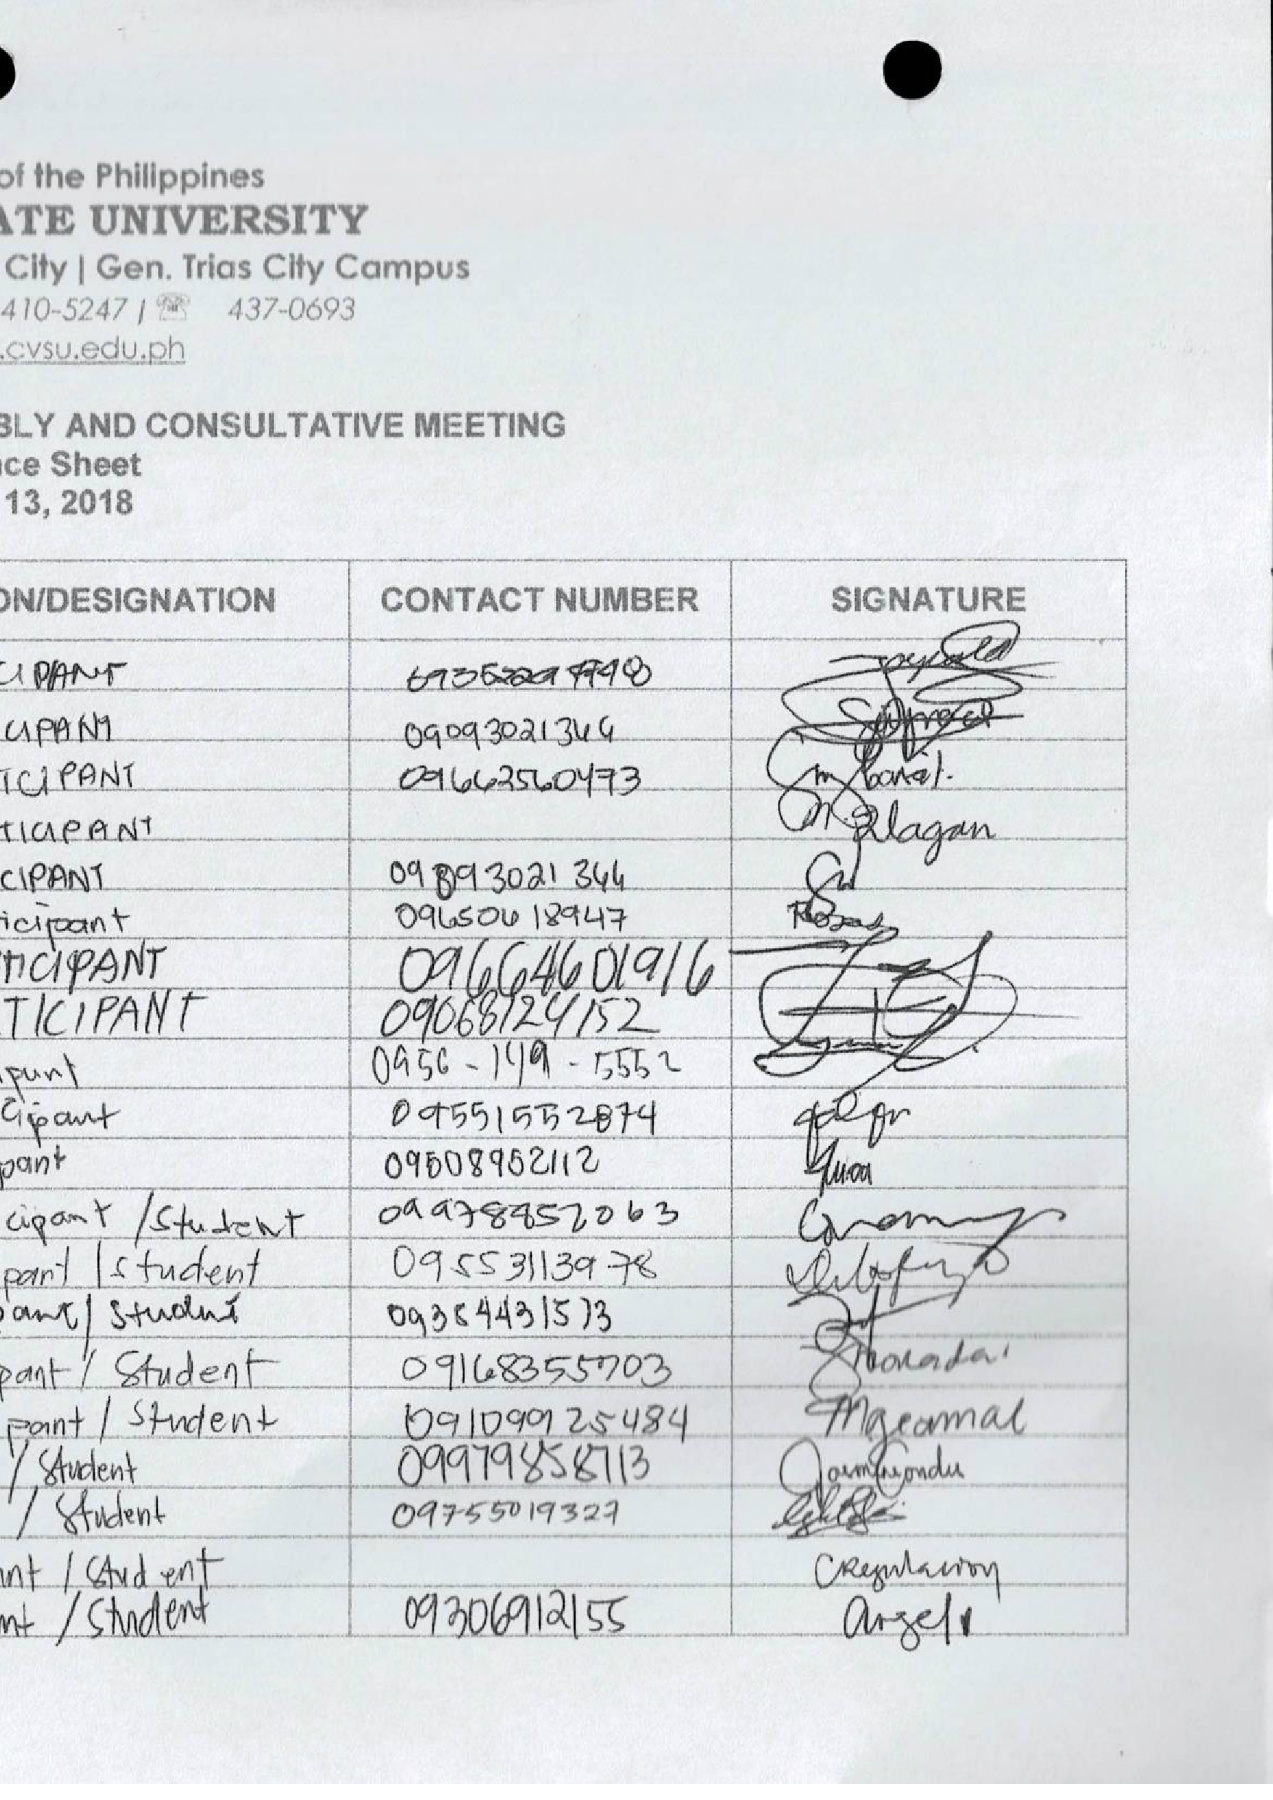 of the Philippines
ATE UNIVERSITY
City | Gen. Trias City Campus
410-5247 | ☏ 437-0693
.cvsu.edu.ph
BLY AND CONSULTATIVE MEETING
nce Sheet
13, 2018
ON/DESIGNATION CONTACT NUMBER SIGNATURE
CIPANT
CIPANT 09093021344
TICIPANT 09662560473
TICIPANT Alagan
CIPANT 09893021344
ticipant 09650618947 Rosas
TICIPANT 09664601916
TICIPANT 09068124152
ipant 0956-149-5552
Cipant 09551552874
pant 09508952112
cipant / Student 09978852063
pant / student 09553113978
pant / Student 09384431573
pant / Student 09168355703
pant / Student 09109925484
/ Student 09979858713
/ Student 09755019327
ant / Student CRegulacion
ant / Student 09306912155 Argel